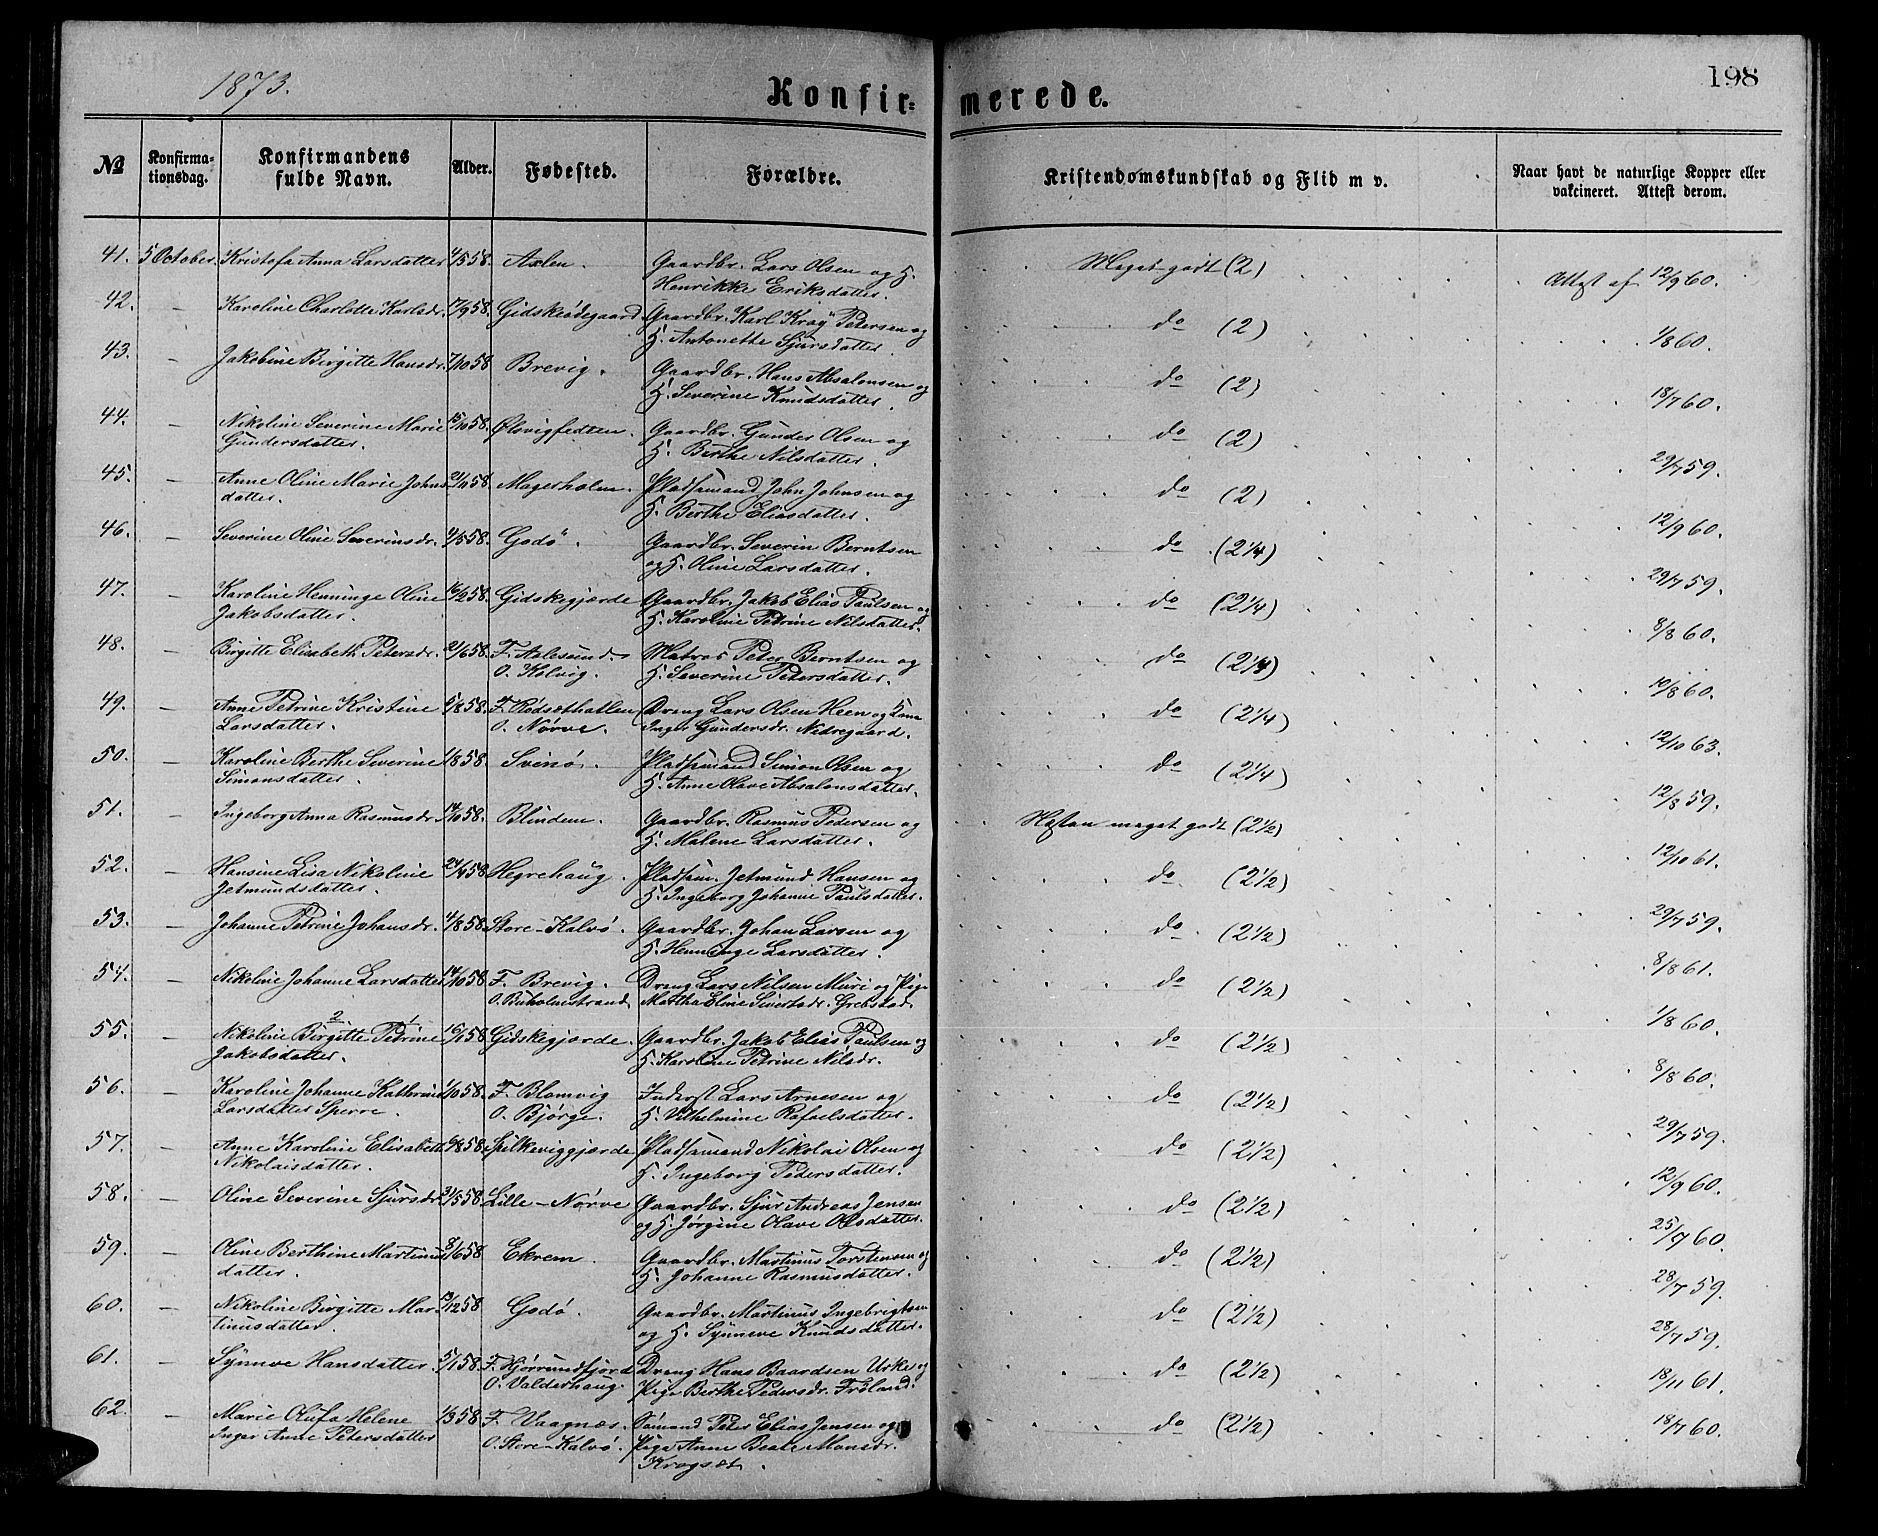 1873.
Konfir=
merede.
198
No
Konfirma=
tionsdag.
Konfirmandens
fulde Navn.
Alder.
Fødested.
Forældre.
Kristendomskundskab og Flid m v.
Naar havt de naturlige Kopper eller
vakcineret. Attest derom.
41. 5 October. Kristofa Anna Larsdatter 4/5 58. Axlen. Gaardbr. Lars Olsen og H. Meget godt (2) Attest af 12/9 60.
Henrikke Eriksdatter.
42. — Karoline Charlotte Karlsdr. 17/9 58. Gidskeødegaard. Gaardbr. Karl Kray Petersen og do (2) 1/8 60.
H. Antonette Sjursdatter.
43. — Jakobine Birgitte Hansdr. 7/10 58 Brevig. Gaardbr. Hans Absalonsen og do (2) 18/7 60.
H. Severine Knudsdatter.
44. — Nikoline Severine Marie 15/10 58. Ølsvigfedten. Gaardbr. Gunder Olsen og do (2) 29/7 59.
Gundersdatter. H. Berthe Nilsdatter.
45. — Anne Oline Marie Johns 21/10 58 Magerholm. Pladsemand John Johnsen og do (2) 12/9 60.
datter. H. Berthe Eliasdatter.
46. — Severine Oline Severinsdr. 4/5 58. Godø. Gaardbr. Severin Berntsen do (2 1/4) 29/7 59.
og H. Oline Larsdatter.
47. — Karoline Henninge Oline 16/2 58. Gidskegjerde Gaardbr. Jakob Elias Paulsen og do (2 1/4) 8/8 60.
Jakobsdatter. H. Karoline Petrine Nilsdatter.
48. — Birgitte Elisabeth Petersdr. 21/6 58. F. Aalesund. Matros Peter Berntsen og do (2 1/4) 10/8 60.
O. Kolvig. H. Severine Petersdatter.
49. — Anne Petrine Kristine 5/8 58. F. Røsæthatlen Dreng Lars Olsen Heen og Kone do (2 1/4) 12/10 63.
Larsdatter. O. Nørve. Inger Gundersdr. Nedregaard.
50. — Karoline Berthe Severine 1/8 58. Svinø. Pladsemand Simon Olsen og do (2 1/4) 12/8 59.
Simonsdatter. H. Anne Olave Absalonsdatter.
51. — Ingeborg Anna Rasmusdr. 14/10 58. Blindem. Gaardbr. Rasmus Pedersen og Næsten meget godt (2 1/2) 12/10 61.
H. Malene Larsdatter.
52. — Hansine Lisa Nikoline 24/4 58 Hegrehaug. Pladsm. Jetmund Hansen og do (2 1/2) 29/7 59.
Jetmundsdatter. H. Ingeborg Johanne Paulsdatter.
53. — Johanne Petrine Johansdr. 4/8 58. Store-Kalvø. Gaardbr. Johan Larsen og do (2 1/2) 8/8 61.
H. Henninge Larsdatter.
54. — Nikoline Johanne Larsdatter 14/10 58 F. Brevig. Dreng Lars Nilsen Muri og Pige do (2 1/2) 1/8 60.
O. Buholmstrand. Martha Eline Sivertsdr. Grebstad.
2 1
55. — Nikoline Birgitte Petrine 16/1 58. Gidskegjerde. Gaardbr. Jakob Elias Paulsen og do (2 1/2) 8/8 60.
Jakobsdatter. H. Karoline Petrine Nilsdr.
56. — Karoline Johanne Kathrine 1/10 58. F. Blomvig Inderst Lars Arnesen og do (2 1/2) 29/7 59.
Larsdatter Sperre. O. Bjørge. H. Vilhelmine Rafaelsdatter.
57. — Anne Karoline Elisabeth 6/8 58. Spilkeviggjerde Pladsemand Nikolai Olsen og do (2 1/2) 12/9 60.
Nikolaisdatter. H. Ingeborg Pedersdatter.
58. — Oline Severine Sjursdr. 31/5 58. Lille-Nørve Gaardbr. Sjur Andreas Jensen do (2 1/2) 25/9 60.
og H. Jørgine Olave Olsdatter.
59. — Oline Berthine Martinus 8/6 58. Ekrem. Gaardbr. Martinus Torstensen og do (2 1/2) 28/7 59.
datter. H. Johanne Rasmusdatter.
60. — Nikoline Birgitte Mar= 13/12 58 Godø. Gaardbr. Martinus Ingebrigtsen do (2 1/2) 28/7 59.
tinusdatter. og H. Synneve Knudsdatter.
61. — Synneve Hansdatter. 5/1 58. F. Hjørundfjord Dreng Hans Baardsen Urke og do (2 1/2) 18/11 61.
O. Valderhaug. Pige Berthe Pedersdr. Frøland.
62. — Marie Olufa Helene 1/3 58 F. Vaagnæs. Sømand Peter Elias Jensen og do (2 1/2) 18/7 60.
Inger Anne Petersdatter O. Store-Kalvø. Pige Anne Beate Monsdr.
Krogsæt.